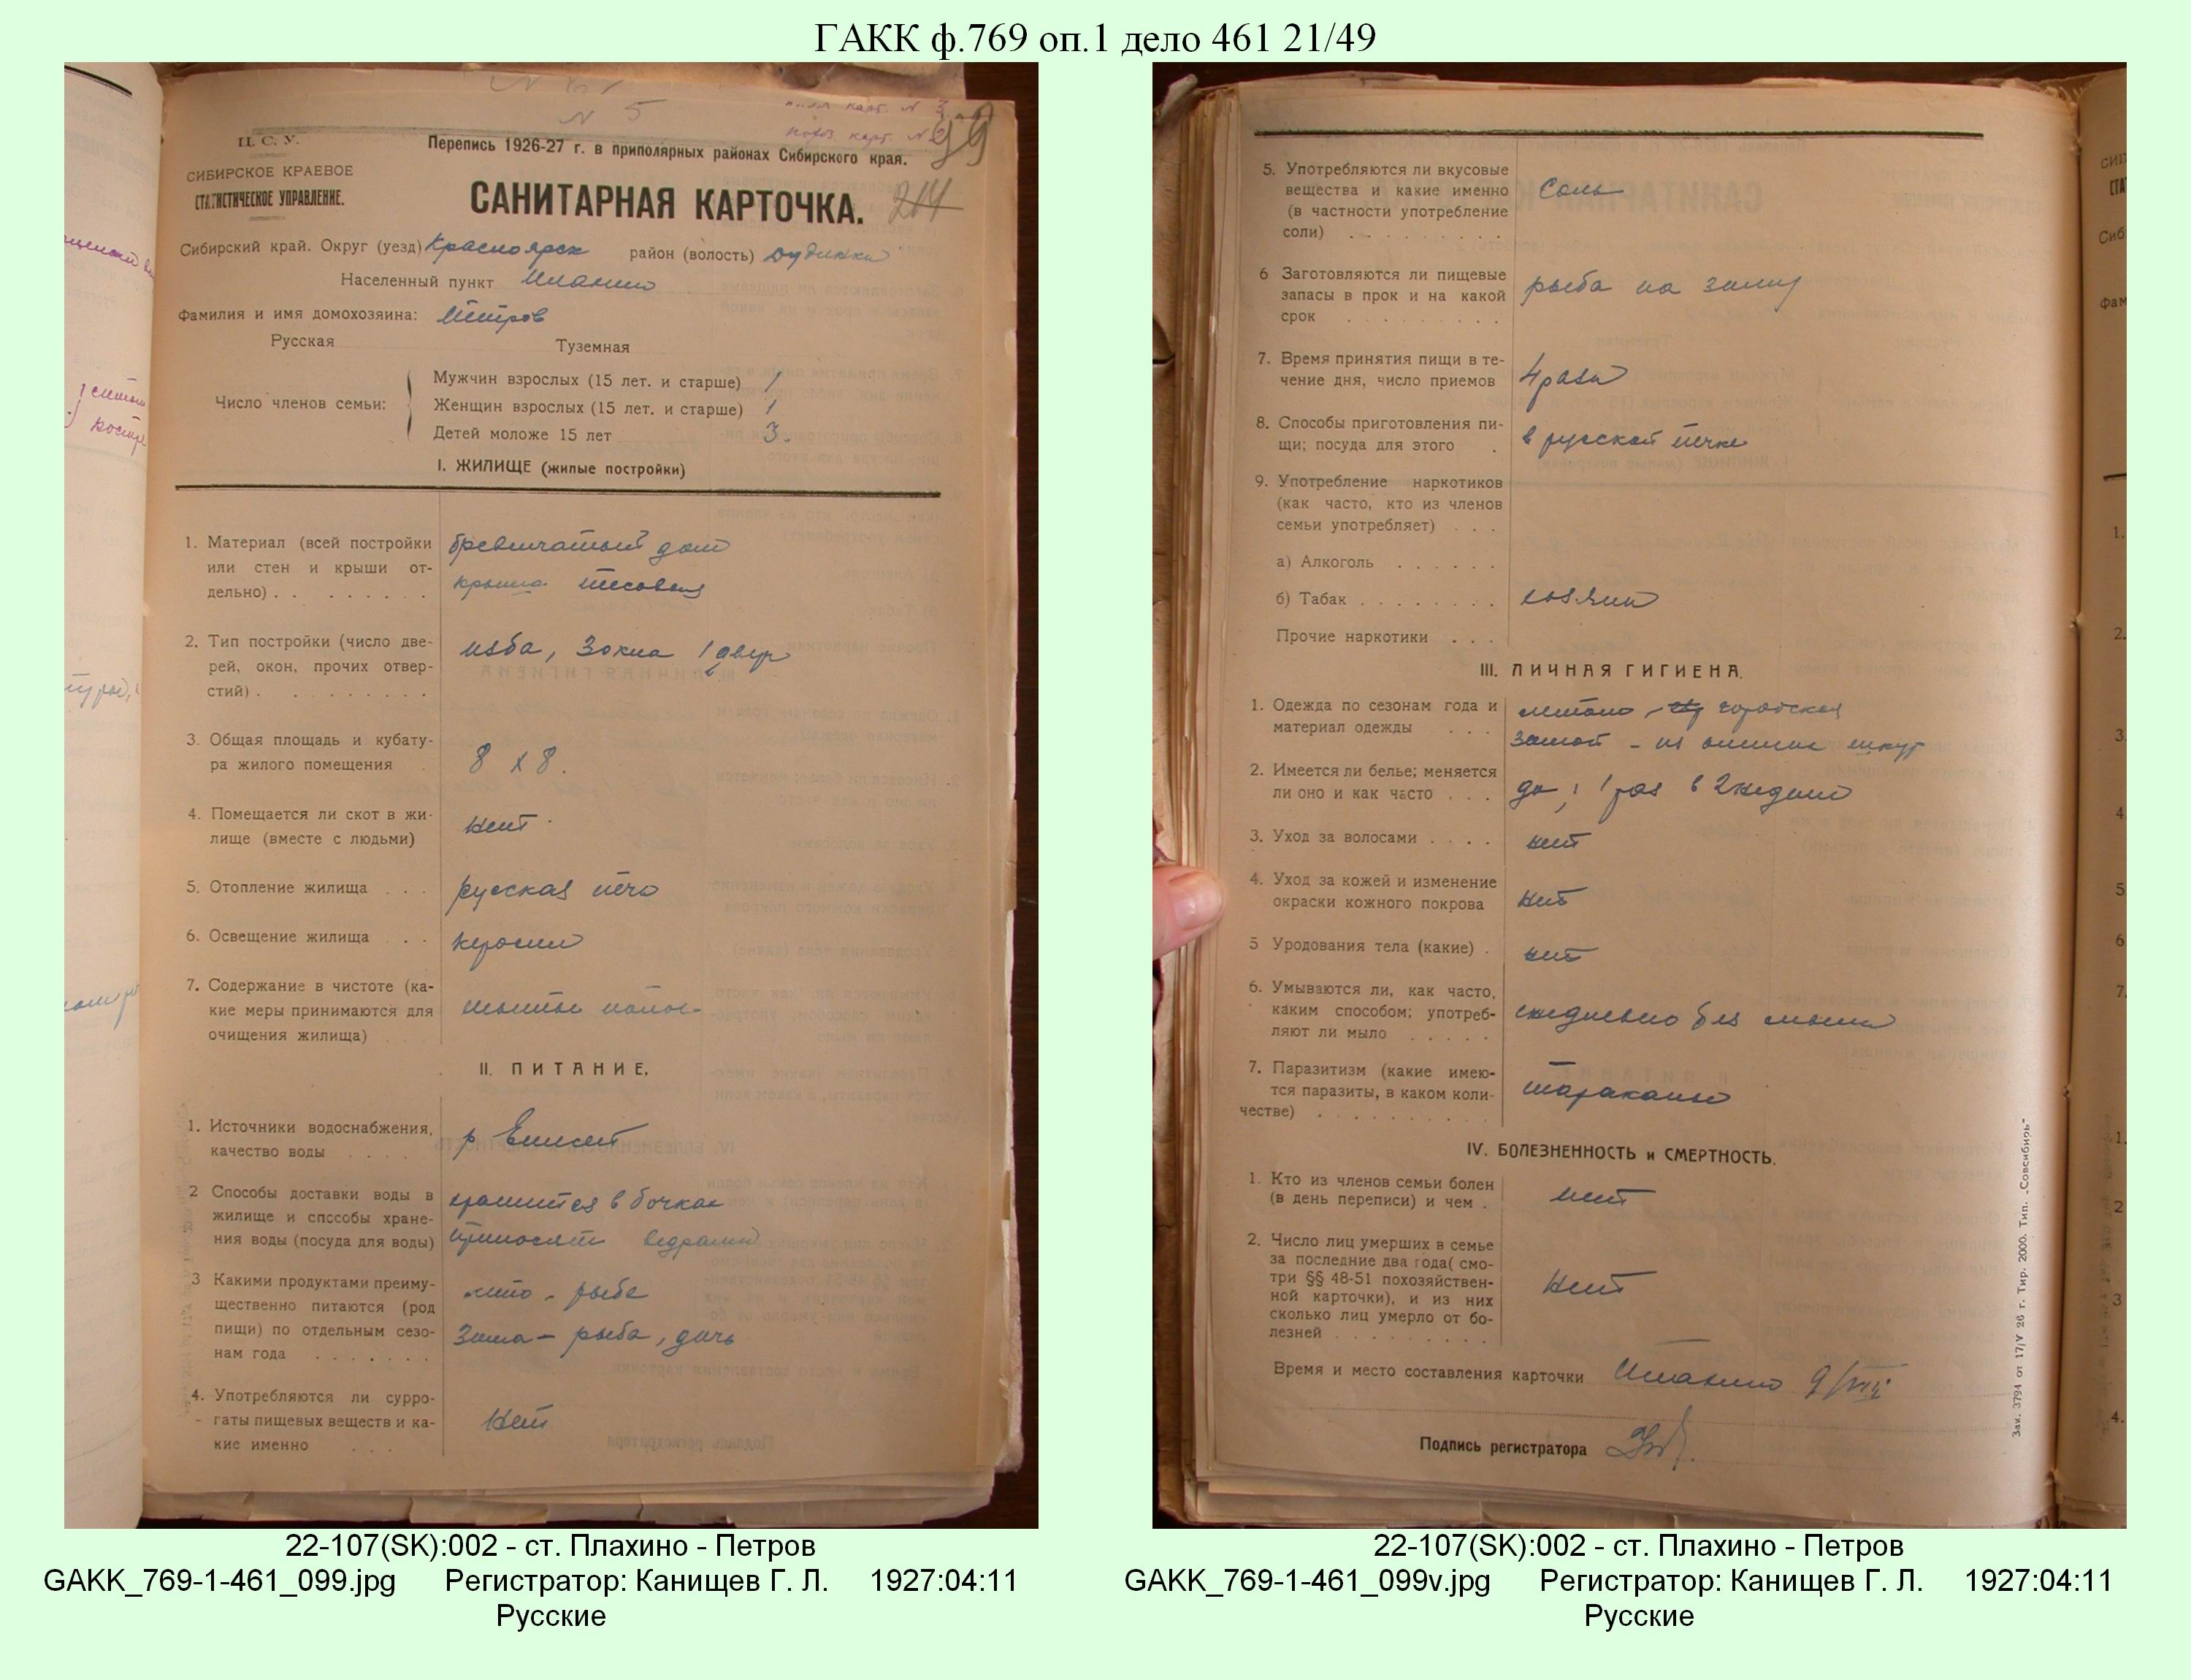 ГАКК ф.769 оп.1 дело 461 21/49
N 5
карт. N 3
карт. N 2
99
214
Ц. С. У.
СИБИРСКОЕ КРАЕВОЕ
СТАТИСТИЧЕСКОЕ УПРАВЛЕНИЕ.
Перепись 1926-27 г. в приполярных районах Сибирского края.
САНИТАРНАЯ КАРТОЧКА.
Сибирский край. Округ (уезд) Красноярск район (волость) Дудинки
Населенный пункт
Фамилия и имя домохозяина: Петров
Русская Туземная
Число членов семьи:
Мужчин взрослых (15 лет. и старше) 1
Женщин взрослых (15 лет. и старше) 1
Детей моложе 15 лет 3.
I. ЖИЛИЩЕ (жилые постройки)
1. Материал (всей постройки бревенчатый дом
или стен и крыши от- крыша тесовая
дельно) . . . . . . . .
2. Тип постройки (число две- изба, 3 окна 1 двер
рей, окон, прочих отвер-
стий) . . . . . . . . .
3. Общая площадь и кубату-
ра жилого помещения . 8 x 8.
4. Помещается ли скот в жи- нет.
лище (вместе с людьми)
5. Отопление жилища . . . русская печь
6. Освещение жилища . . керосин
7. Содержание в чистоте (ка-
кие меры принимаются для мытье полов
очищения жилища)
II. ПИТАНИЕ.
1. Источники водоснабжения, р Енисей
качество воды . . . .
2 Способы доставки воды в хранится в бочках
жилище и способы хране- приносят ведрами
ния воды (посуда для воды)
3 Какими продуктами преиму- лето - рыба
щественно питаются (род
пищи) по отдельным сезо- Зима - рыба, дичь
нам года . . . . . . .
4. Употребляются ли сурро-
гаты пищевых веществ и ка- Нет
кие именно . . .
22-107(SK):002 - ст. Плахино - Петров
GAKK_769-1-461_099.jpg Регистратор: Канищев Г. Л. 1927:04:11
Русские
5. Употребляются ли вкусовые
вещества и какие именно Соль
(в частности употребление
соли) . . . . . . . . .
6 Заготовляются ли пищевые
запасы в прок и на какой рыба на зиму
срок . . . . . . . . .
7. Время принятия пищи в те-
чение дня, число приемов 4 раза
8. Способы приготовления пи-
щи; посуда для этого . в русской печке
9. Употребление наркотиков
(как часто, кто из членов
семьи употребляет) . . .
а) Алкоголь . . . . . .
б) Табак . . . . . . . . хозяин
Прочие наркотики . . .
III. ЛИЧНАЯ ГИГИЕНА.
1. Одежда по сезонам года и летом, городская
материал одежды . . . зимой - из оленьих шкур
2. Имеется ли белье; меняется
ли оно и как часто . . . да; 1 раз в 2 недели
3. Уход за волосами . . . . нет
4. Уход за кожей и изменение
окраски кожного покрова нет
5 Уродования тела (какие) . нет
6. Умываются ли, как часто,
каким способом; употреб- ежедневно без мыла
ляют ли мыло . . . . .
7. Паразитизм (какие имею-
тся паразиты, в каком коли- тараканы
честве) . . . . . . . .
IV. БОЛЕЗНЕННОСТЬ и СМЕРТНОСТЬ.
1. Кто из членов семьи болен
(в день переписи) и чем . нет
2. Число лиц умерших в семье
за последние два года( смо-
три §§ 48-51 похозяйствен- Нет
ной карточки), и из них
сколько лиц умерло от бо-
лезней . . . . . . . . .
Время и место составления карточки 9/VIII
Подпись регистратора
Зак. 3794 от 17/V 26 г. Тир. 2000. Тип. „Совсибирь"
22-107(SK):002 - ст. Плахино - Петров
GAKK_769-1-461_099v.jpg Регистратор: Канищев Г. Л. 1927:04:11
Русские